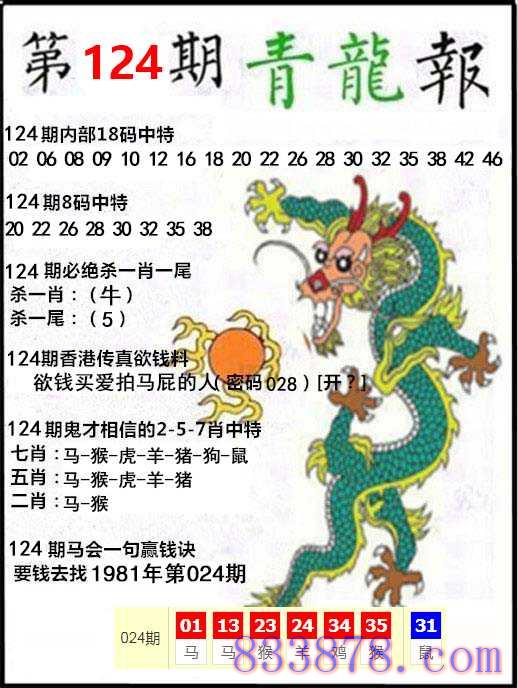 第124期 青龍報
124期内部18码中特
02 06 08 09 10 12 16 18 20 22 26 28 30 32 35 38 42 46
124期8码中特
20 22 26 28 30 32 35 38
124期必绝杀一肖一尾
杀一肖：（牛）
杀一尾：（5）
124期香港传真欲钱料
欲钱买爱拍马屁的人（密码028）[开？]
124期鬼才相信的2-5-7肖中特
七肖：马-猴-虎-羊-猪-狗-鼠
五肖：马-猴-虎-羊-猪
二肖：马-猴
124期马会一句赢钱诀
要钱去找1981年第024期
024期 01 13 23 24 34 35 31
马 马 猴 羊 鸡 猴 鼠
833878.com